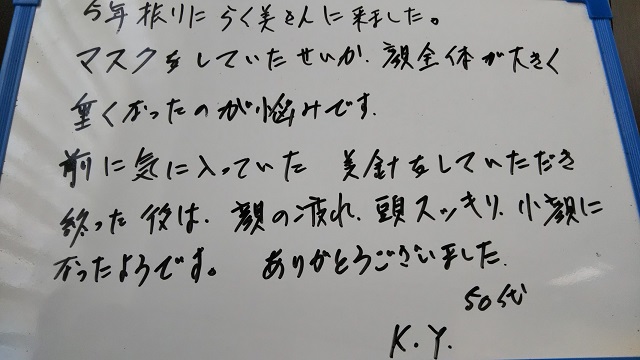 5年振りにらく美さんに来ました。
マスクをしていたせいか、顔全体が大きく
重くなったのが悩みです.
前に気に入っていた 美針をしていただき
終った後は、顔の疲れ、頭スッキリ、小顔に
なったようです。 ありがとうございました.
50代
K.Y.